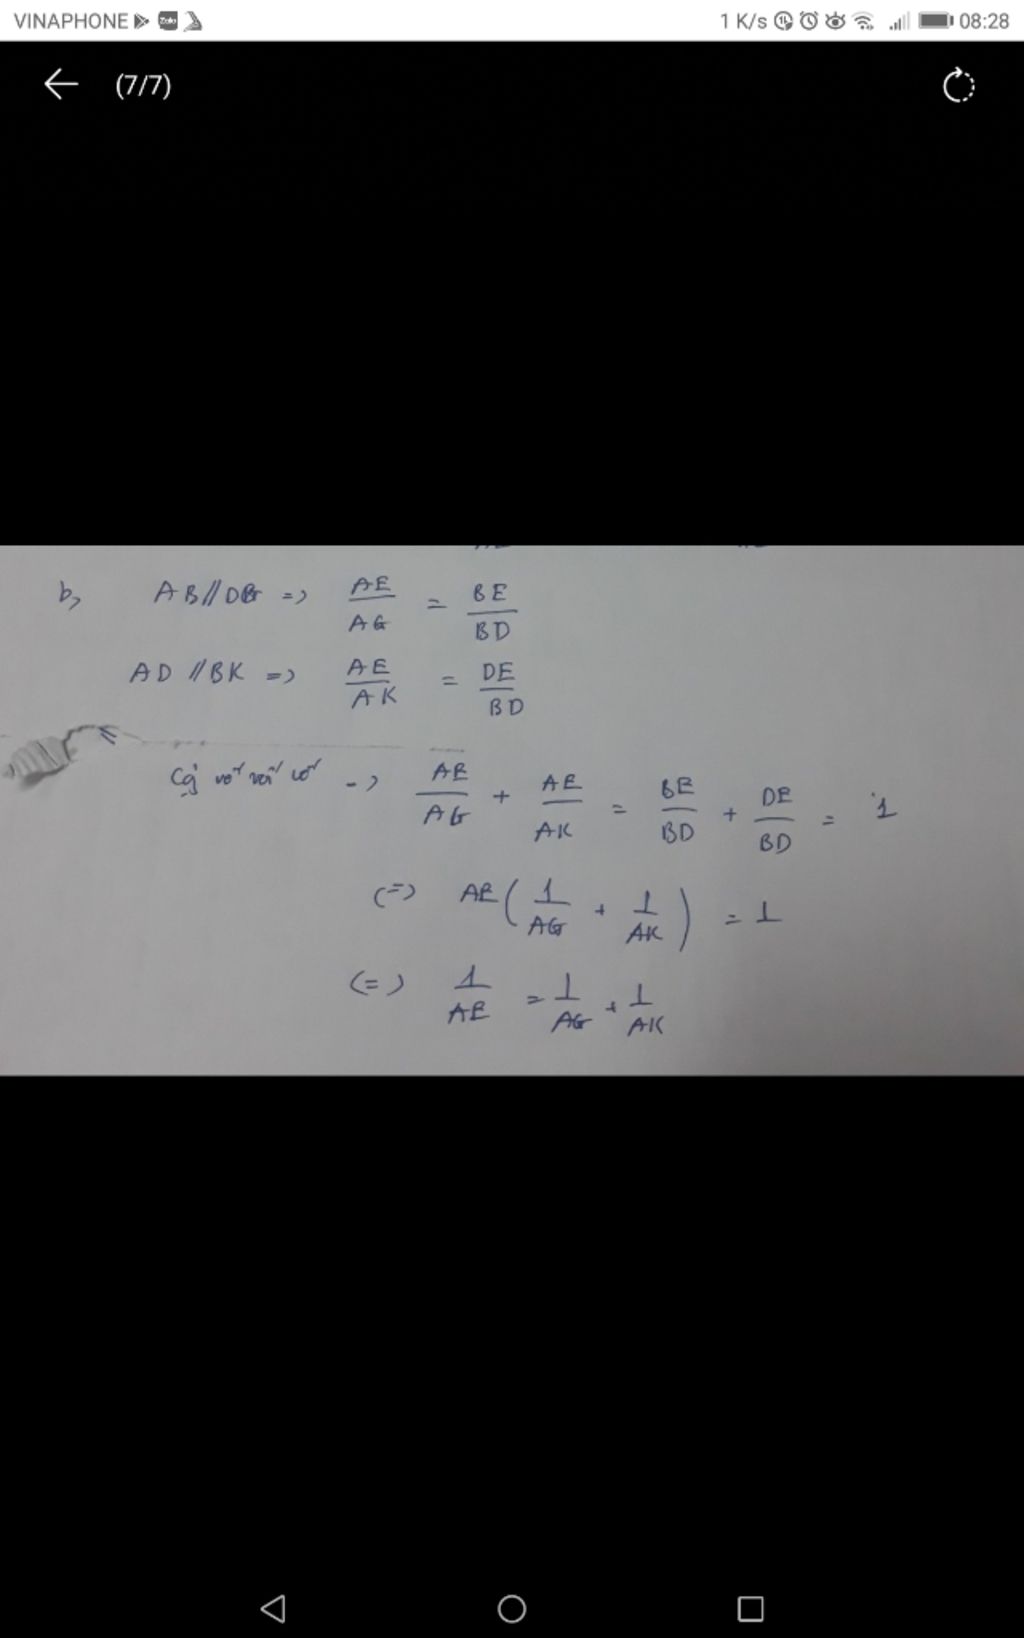 VINAPHONE Zalo 1 K/s 08:28
(7/7)
b, AB//DG => AE/AG = BE/BD
AD //BK => AE/AK = DE/BD
Cộ vế với vế -> AE/AG + AE/AK = BE/BD + DE/BD = 1
(=) AE(1/AG + 1/AK) = 1
(=) 1/AE = 1/AG + 1/AK